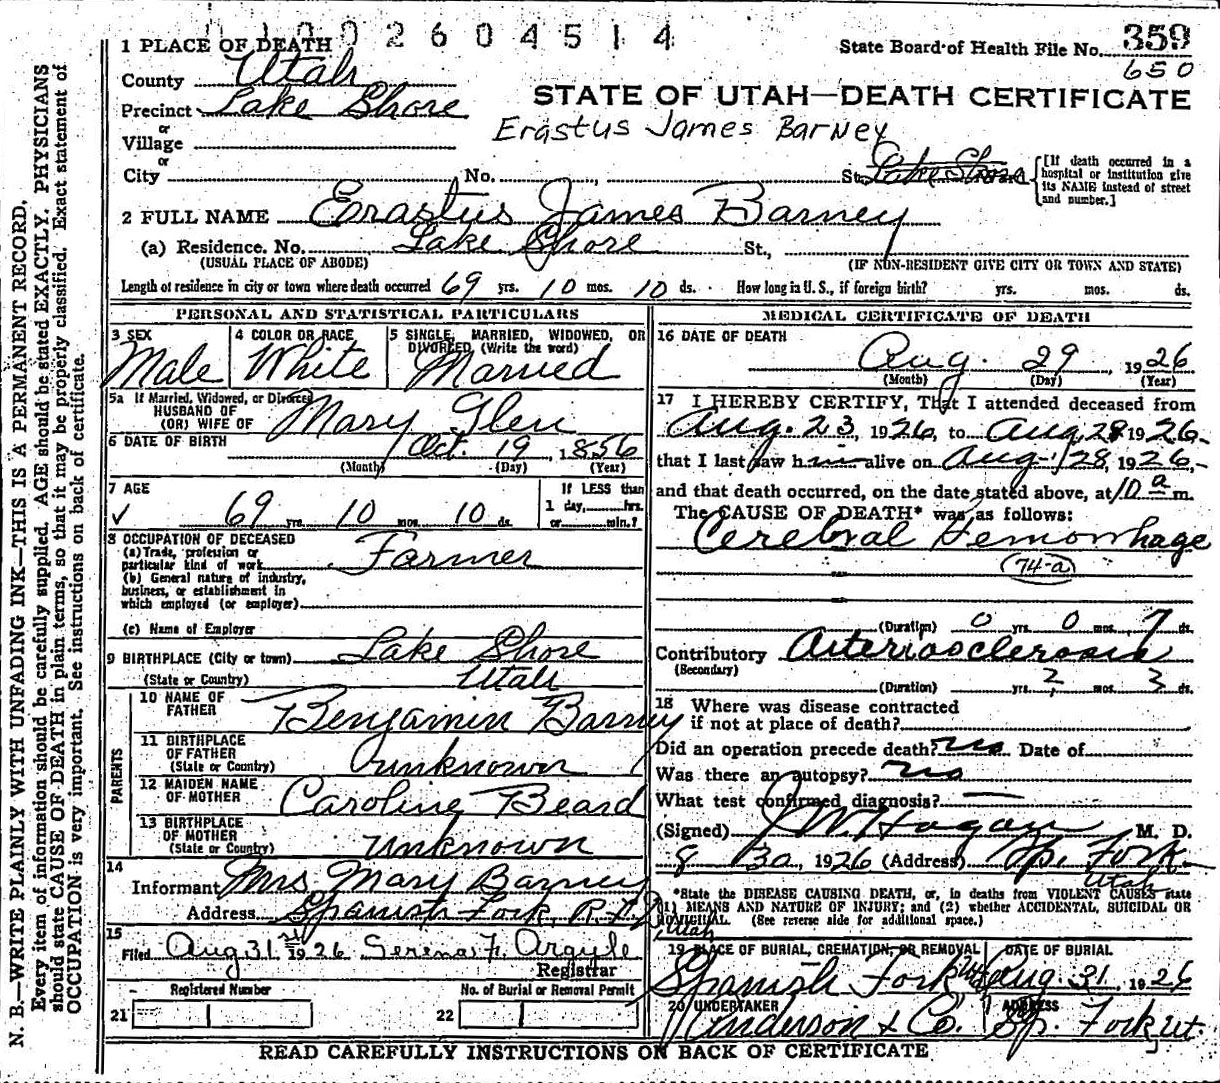 0 1 0 0 2 6 0 4 5 1 4
State Board of Health File No. 359
650
1 PLACE OF DEATH
County Utah
Precinct Lake Shore
or
Village
or
City No. , St. Lake Shore
[If death occurred in a hospital or institution give its NAME instead of street and number.]
STATE OF UTAH—DEATH CERTIFICATE
Erastus James Barney
2 FULL NAME Erastus James Barney
(a) Residence. No. Lake Shore St.,
(USUAL PLACE OF ABODE) (IF NON-RESIDENT GIVE CITY OR TOWN AND STATE)
Length of residence in city or town where death occurred 69 yrs. 10 mos. 10 ds. How long in U. S., if foreign birth? yrs. mos. ds.
PERSONAL AND STATISTICAL PARTICULARS
3 SEX
Male
4 COLOR OR RACE
White
5 SINGLE, MARRIED, WIDOWED, OR
DIVORCED, (Write the word)
Married
5a If Married, Widowed, or Divorced
HUSBAND OF
(OR) WIFE OF Mary Glen
6 DATE OF BIRTH Oct. 19, 1856
(Month) (Day) (Year)
7 AGE
√ 69 yrs. 10 mos. 10 ds.
If LESS than
1 day, hrs.
or min.?
8 OCCUPATION OF DECEASED
(a) Trade, profession or
particular kind of work Farmer
(b) General nature of industry,
business, or establishment in
which employed (or employer)
(c) Name of Employer
9 BIRTHPLACE (City or town) Lake Shore
(State or Country) Utah
PARENTS
10 NAME OF
FATHER Benjamin Barney
11 BIRTHPLACE
OF FATHER
(State or Country) unknown
12 MAIDEN NAME
OF MOTHER Caroline Beard
13 BIRTHPLACE
OF MOTHER
(State or Country) Unknown
14
Informant Mrs. Mary Barney
Address Spanish Fork, R.F.D.
Utah
15
Filed Aug 31 1926 Serena F. Argyle
Registrar
Registered Number No. of Burial or Removal Permit
21 22
MEDICAL CERTIFICATE OF DEATH
16 DATE OF DEATH
Aug. 29 1926
(Month) (Day) (Year)
17 I HEREBY CERTIFY, That I attended deceased from
Aug. 23, 1926, to Aug 28 1926
that I last saw him alive on Aug. 28, 1926,
and that death occurred, on the date stated above, at 10 a m.
The CAUSE OF DEATH* was as follows:
Cerebral Hemorrhage
74-a
(Duration) 0 yrs. 0 mos. 7 ds.
Contributory Arteriosclerosis
(Secondary)
(Duration) yrs. 2 mos. 3 ds.
18 Where was disease contracted
if not at place of death?
Did an operation precede death? no Date of
Was there an autopsy? no
What test confirmed diagnosis? —
(Signed) J.W. Hagan M. D.
8 30, 1926 (Address) Sp. Fork
Utah
*State the DISEASE CAUSING DEATH, or, in deaths from VIOLENT CAUSES state
(1) MEANS AND NATURE OF INJURY; and (2) whether ACCIDENTAL, SUICIDAL OR
HOMICIDAL. (See reverse side for additional space.)
19 PLACE OF BURIAL, CREMATION, OR REMOVAL
Spanish Fork
DATE OF BURIAL
Aug. 31, 1926
20 UNDERTAKER
Anderson & Co.
ADDRESS
Sp. Fork Ut.
READ CAREFULLY INSTRUCTIONS ON BACK OF CERTIFICATE
N. B.—WRITE PLAINLY WITH UNFADING INK—THIS IS A PERMANENT RECORD.
Every item of information should be carefully supplied. AGE should be stated EXACTLY. PHYSICIANS
should state CAUSE OF DEATH in plain terms, so that it may be properly classified. Exact statement of
OCCUPATION is very important. See instructions on back of certificate.